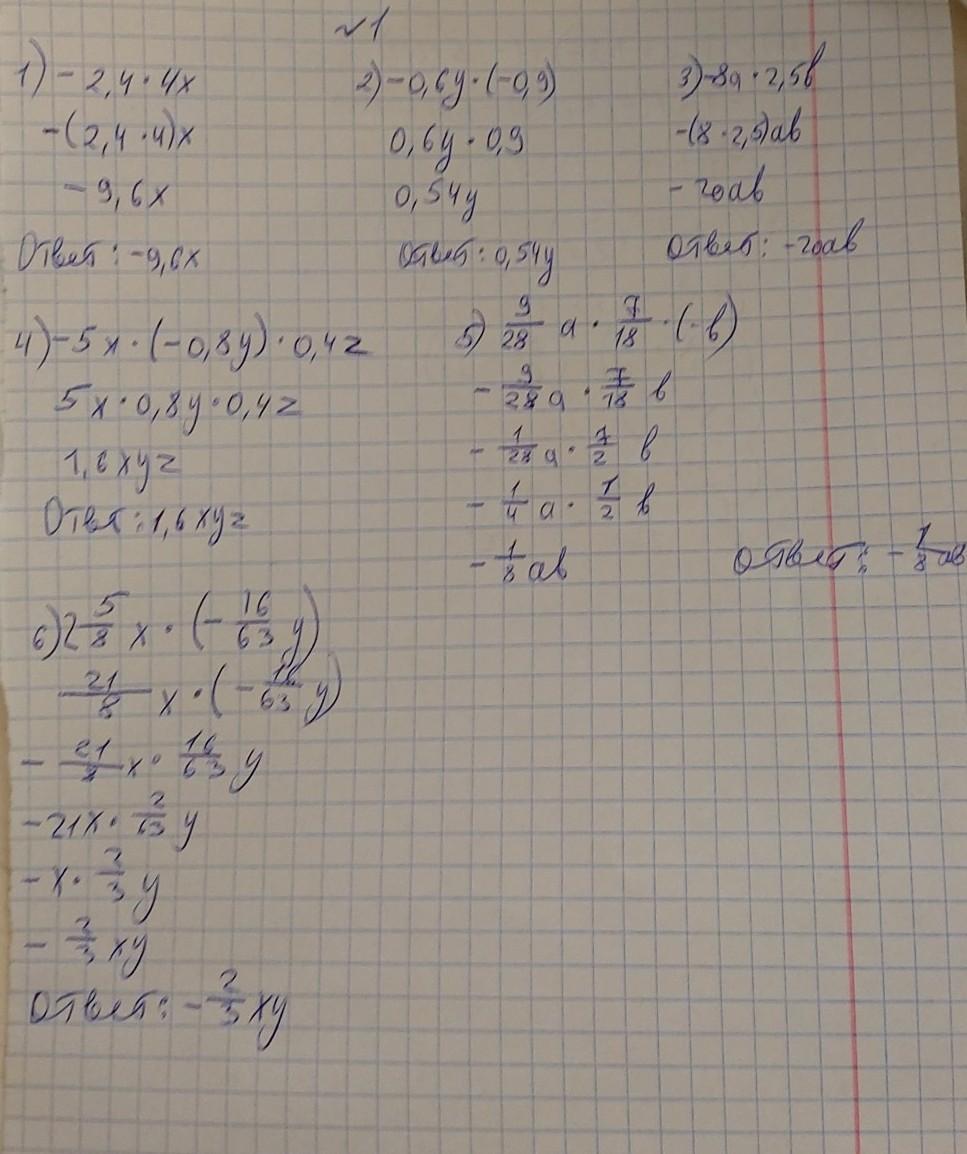 №1
1) -2,4·4x
-(2,4·4)x
-9,6x
Ответ: -9,6x
2) -0,6y·(-0,9)
0,6y·0,9
0,54y
Ответ: 0,54y
3) -8a·2,5b
-(8·2,5)ab
-20ab
Ответ: -20ab
4) -5x·(-0,8y)·0,4z
5x·0,8y·0,4z
1,6xyz
Ответ: 1,6xyz
5) 9/28 a · 7/18 · (-b)
- 9/28 a · 7/18 b
- 1/28 a · 7/2 b
- 1/4 a · 1/2 b
- 1/8 ab
Ответ: - 1/8 ab
6) 2 5/8 x · (- 16/63 y)
21/8 x · (- 16/63 y)
- 21/8 x · 16/63 y
-21x · 2/63 y
-x · 2/3 y
- 2/3 xy
Ответ: - 2/3 xy